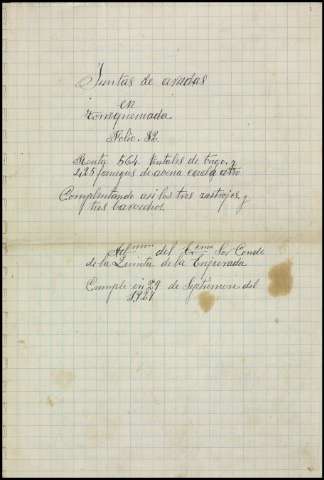 Juntas de ajustas
en
Torrequemada
Folio. 82.
Renta 564 Kentales de trigo y
425 fanegas de avena cada año
Complentando asi los tres rastrojos y
tres barvechos
Adm.mon del Exmo Sor Conde
de la Quinta de la Enjarada
Cumple en 29 de Septiemen del
1927